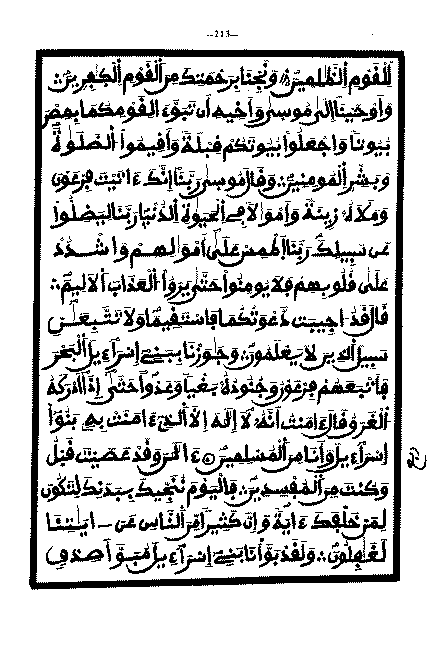 —213—
للقوم الظلمين ونجنا برحمتك من القوم الكفرين
وأوحينا إلى موسى وأخيه أن تبوءا لقومكما بمصر
بيوتا واجعلوا بيوتكم قبلة وأقيموا الصلوة
وبشر المومنين وقال موسى ربنا إنك ءاتيت فرعون
وملأه زينة وأمولا في الحيوة الدنيا ربنا ليضلوا
عن سبيلك ربنا اطمس على أمولهم واشدد
على قلوبهم فلا يومنوا حتى يروا العذاب الاليم
قال قد اجيبت دعوتكما فاستقيما ولا تتبعن
سبيل الذين لا يعلمون وجوزنا ببني إسراءيل البحر
فأتبعهم فرعون وجنوده بغيا وعدوا حتى إذا أدركه
الغرق قال ءامنت أنه لا إله إلا الذي ءامنت به بنوا
إسراءيل وأنا من المسلمين ءالن وقد عصيت قبل
وكنت من المفسدين فاليوم ننجيك ببدنك لتكون
لمن خلفك ءاية وإن كثيرا من الناس عن ءايتنا
لغفلون ولقد بوأنا بني إسراءيل مبوأ صدق